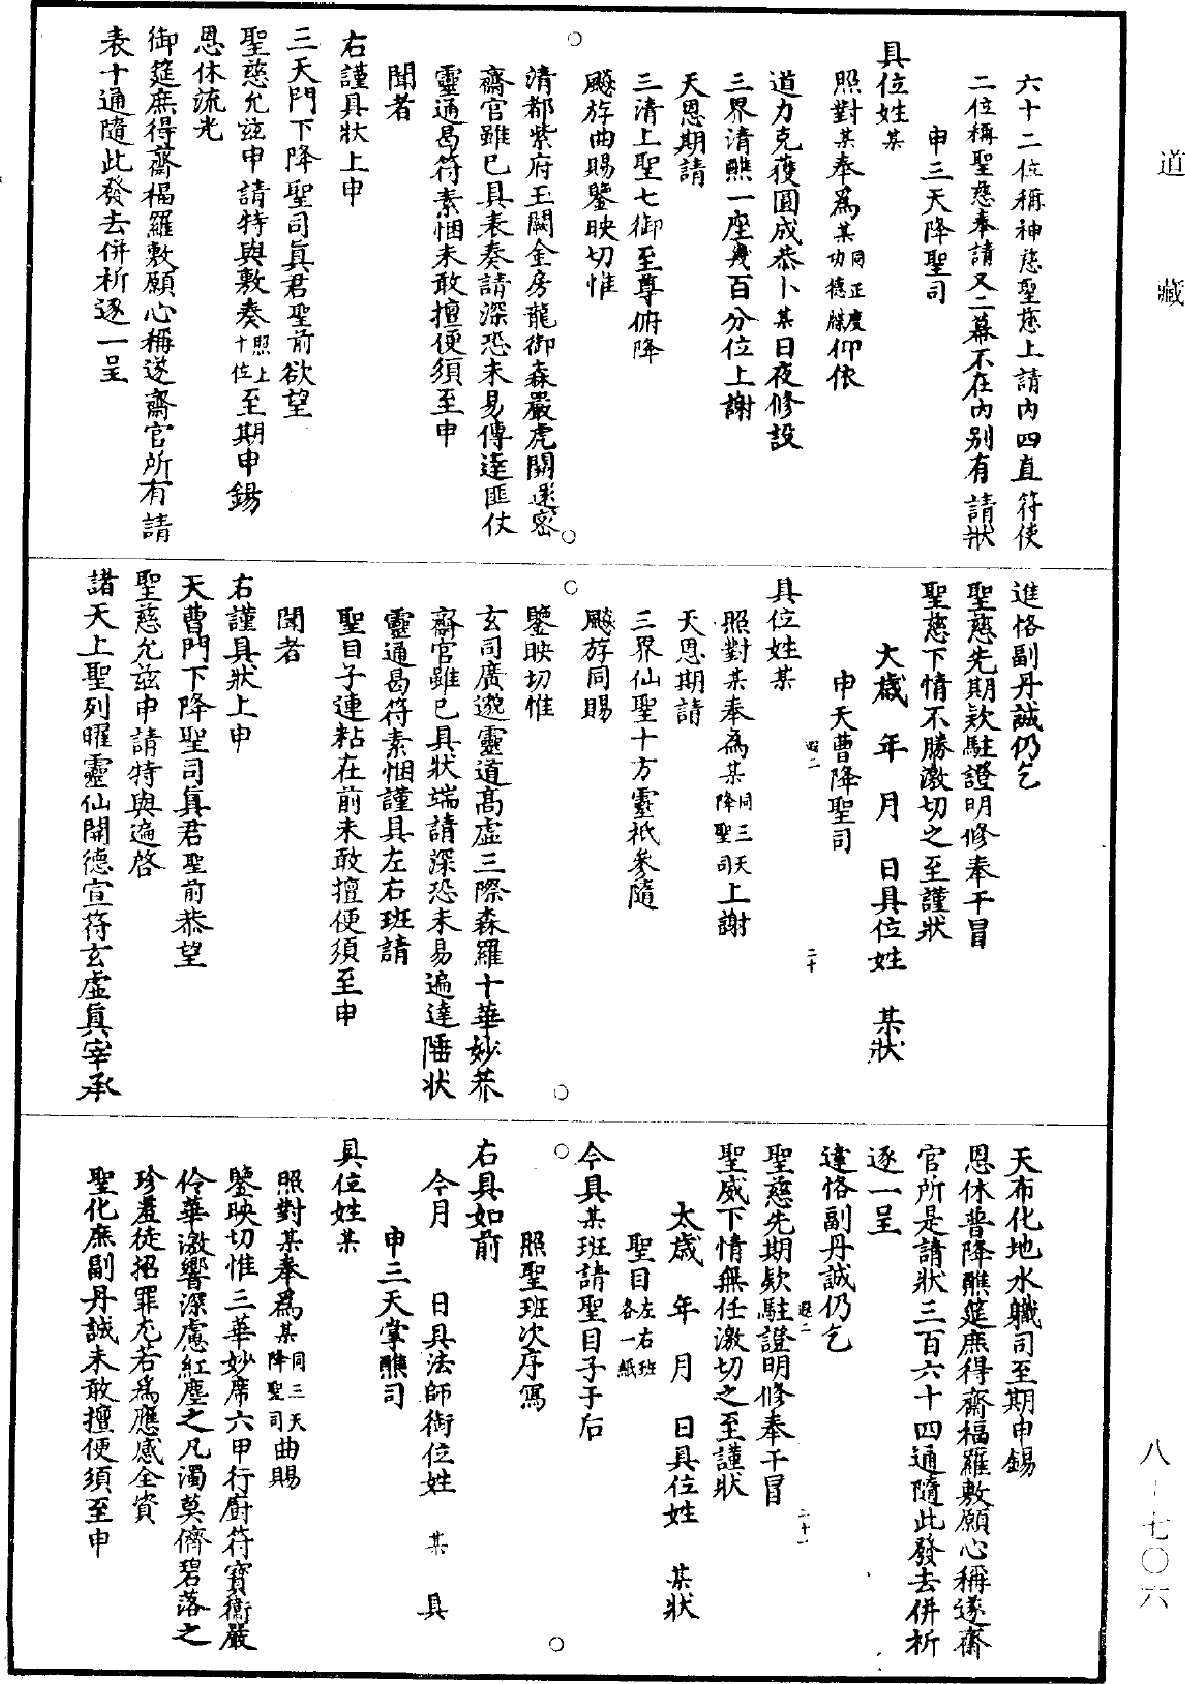 道藏
六十二位稱神慈聖慈上請內四直符使
二位稱聖慈奉請又二幕不在內別有請狀
申三天降聖司
具位姓某
照對某奉為某同正度功德牒仰依
道力克獲圓成恭卜某日夜修設
三界清醮一座幾百分位上謝
天恩期請
三清上聖七御至尊俯降
飈斿曲賜鑒映切惟
清都紫府玉闕金房龍御森嚴虎關邃密
齋官雖已具表奏請深恐未易傳達匪仗
靈通曷符素悃未敢擅便須至申
聞者
右謹具狀上申
三天門下降聖司真君聖前欲望
聖慈允茲申請特與敷奏照上十位至期申錫
恩休流光
御筵庶得齋福羅敷願心稱遂齋官所有請
表十通隨此發去併祈逐一呈
進恪副丹誠仍乞
聖慈先期欵駐證明修奉干冒
聖慈下情不勝激切之至謹狀
大歲 年 月 日具位姓 某狀
申天曹降聖司
具位姓某
照對某奉為某同三天降聖司上謝
天恩期請
三界仙聖十方靈祇參隨
飈斿同賜
鑒映切惟
玄司廣邈靈道高虛三際森羅十華妙莽
齋官雖已具狀端請深恐未易遍達陲狀
靈通曷符素悃謹具左右班請
聖目子連粘在前未敢擅便須至申
聞者
右謹具狀上申
天曹門下降聖司真君聖前恭望
聖慈允茲申請特與遍啓
諸天上聖列曜靈仙開德宣符玄虛真宰承
天布化地水職司至期申錫
恩休普降醮筵庶得齋福羅敷願心稱遂齋
官所是請狀三百六十四通隨此發去併祈
逐一呈
達恪副丹誠仍乞
聖慈先期欵駐證明修奉干冒
聖威下情無任激切之至謹狀
太歲 年 月 日具位姓 某狀
聖目左右班各一紙
今具某班請聖目子于后
照聖班次序寫
右具如前
今月 日具法師銜位姓 某 具
申三天掌醮司
具位姓某
照對某奉為某同三天降聖司曲賜
鑒映切惟三華妙席六甲行廚符寶衛嚴
伶華激響深慮紅塵之凡濁莫儕碧落之
珍羞徒招罪尤若為應感全資
聖化庶副丹誠未敢擅便須至申
八-七〇六